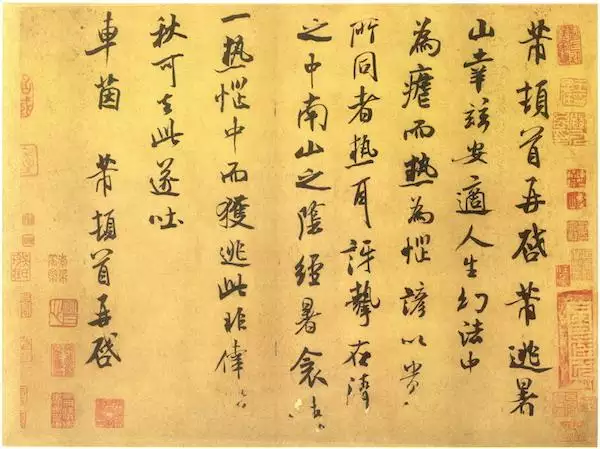 芾頓首再啓芾逃暑
山幸兹安適人生幻法中
為虐而熱為惱諺以貴
所同者熱耳訝摯在濟
之中南山之陰經暑衾
一熱惱中而獲逃此非偉
秋可去此遂吐
車茵 芾頓首再啓